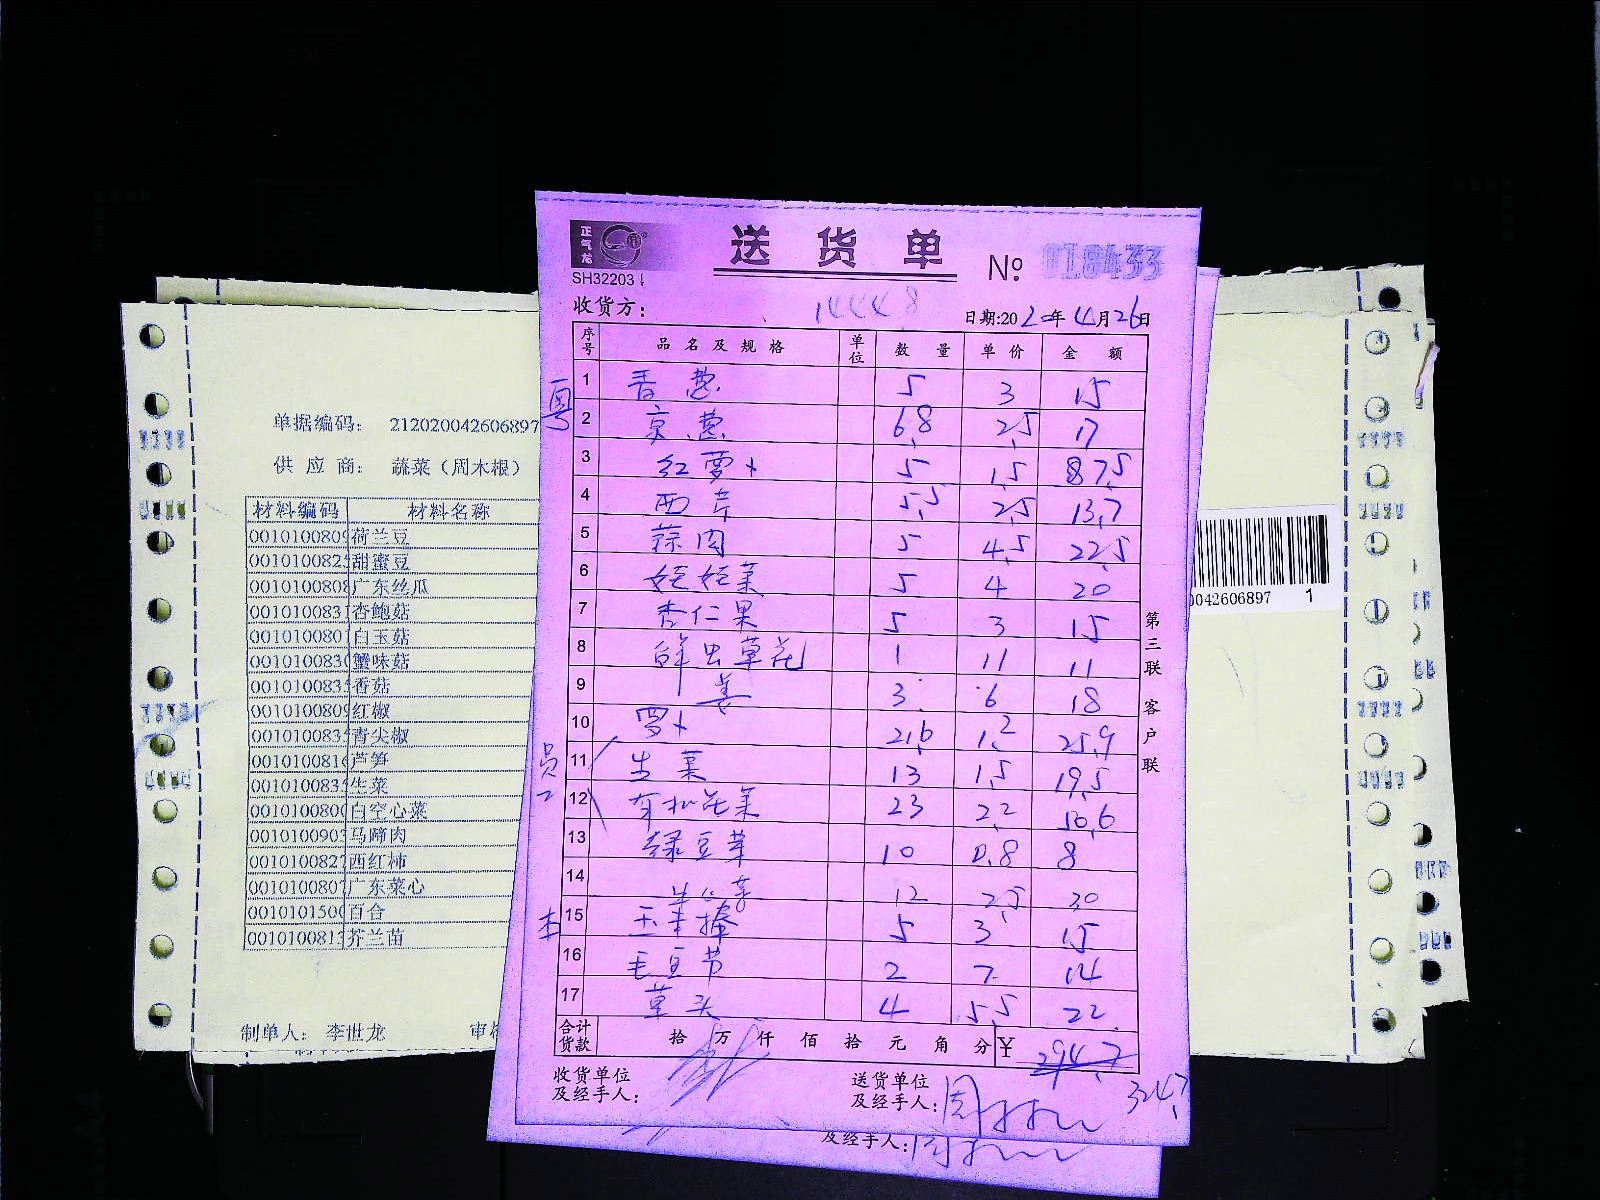 正气龙
送货单
SH32203
№ 018433
收货方：
14448
日期:2020年4月26日
序号 品名及规格 单位 数量 单价 金额
1 香葱 5 3 15
2 京葱 6.8 2.5 17
3 红萝卜 5 1.5 8 7.5
4 西芹 5.5 2.5 13.7
5 蒜肉 5 4.5 22.5
6 娃娃菜 5 4 20
7 杏仁果 5 3 15
8 鲜虫草花 1 11 11
9 姜 3 6 18
10 萝卜 21.6 1.2 25.9
11 生菜 13 1.5 19.5
12 有机花菜 23 2.2 50.6
13 绿豆芽 10 0.8 8
14 12 2.5 30
15 玉米棒 5 3 15
16 毛豆节 2 7 14
17 草头 4 5.5 22
粤
员工
本
合计货款 拾 万 仟 佰 拾 元 角 分 ¥ 294.7
324.7
收货单位及经手人：
送货单位及经手人：
第三联 客户联
及经手人：
单据编码： 212020042606897
供应商： 蔬菜（周木根）
材料编码 材料名称
0010100809 荷兰豆
001010082 甜蜜豆
0010100808 广东丝瓜
001010083 杏鲍菇
001010080 白玉菇
001010083 蟹味菇
001010083 香菇
0010100809 红椒
001010083 青尖椒
001010081 芦笋
001010083 生菜
001010080 白空心菜
001010090 马蹄肉
001010082 西红柿
001010080 广东菜心
001010150 百合
001010081 芥兰苗
制单人： 李世龙
审
0042606897 1